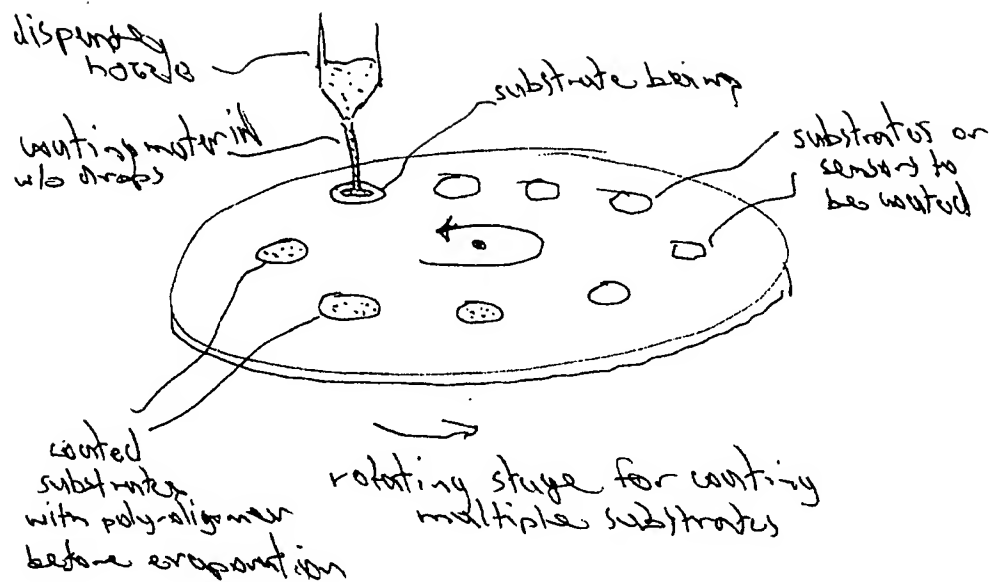 dispensing
nozzle
substrate being
coating material
w/o drops
substrates or
sensors to
be coated
coated
substrates
with poly-oligomer
before evaporation
rotating stage for coating
multiple substrates